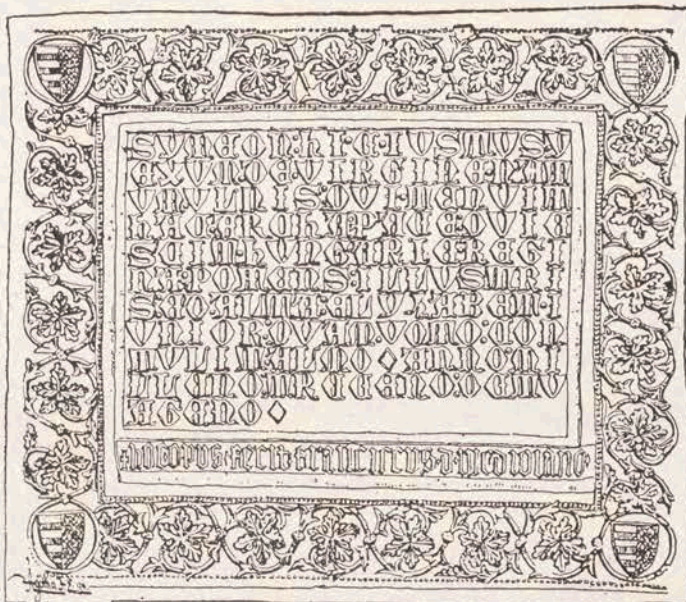 SYMEON:HI·C·IVSTVS·Y
EXVM·DEVIRGINE·NAT
VMVLNIS:QVI·TENVIT
HAC·ARCHA·PACE·QVIE
SCIT·HVNGARIE·REGI
NA·POTENS·ILLVSTRI
S:ED·ALTA·ELYZABET·I
VNIOR·QVAM·VOTO:CON
TVLIT·ALMO ◊ ANNO·MI
LLENO:TRECENO:OCTV
AGENO ◊
hocopus·fecit·franciscus·d·mediolano·